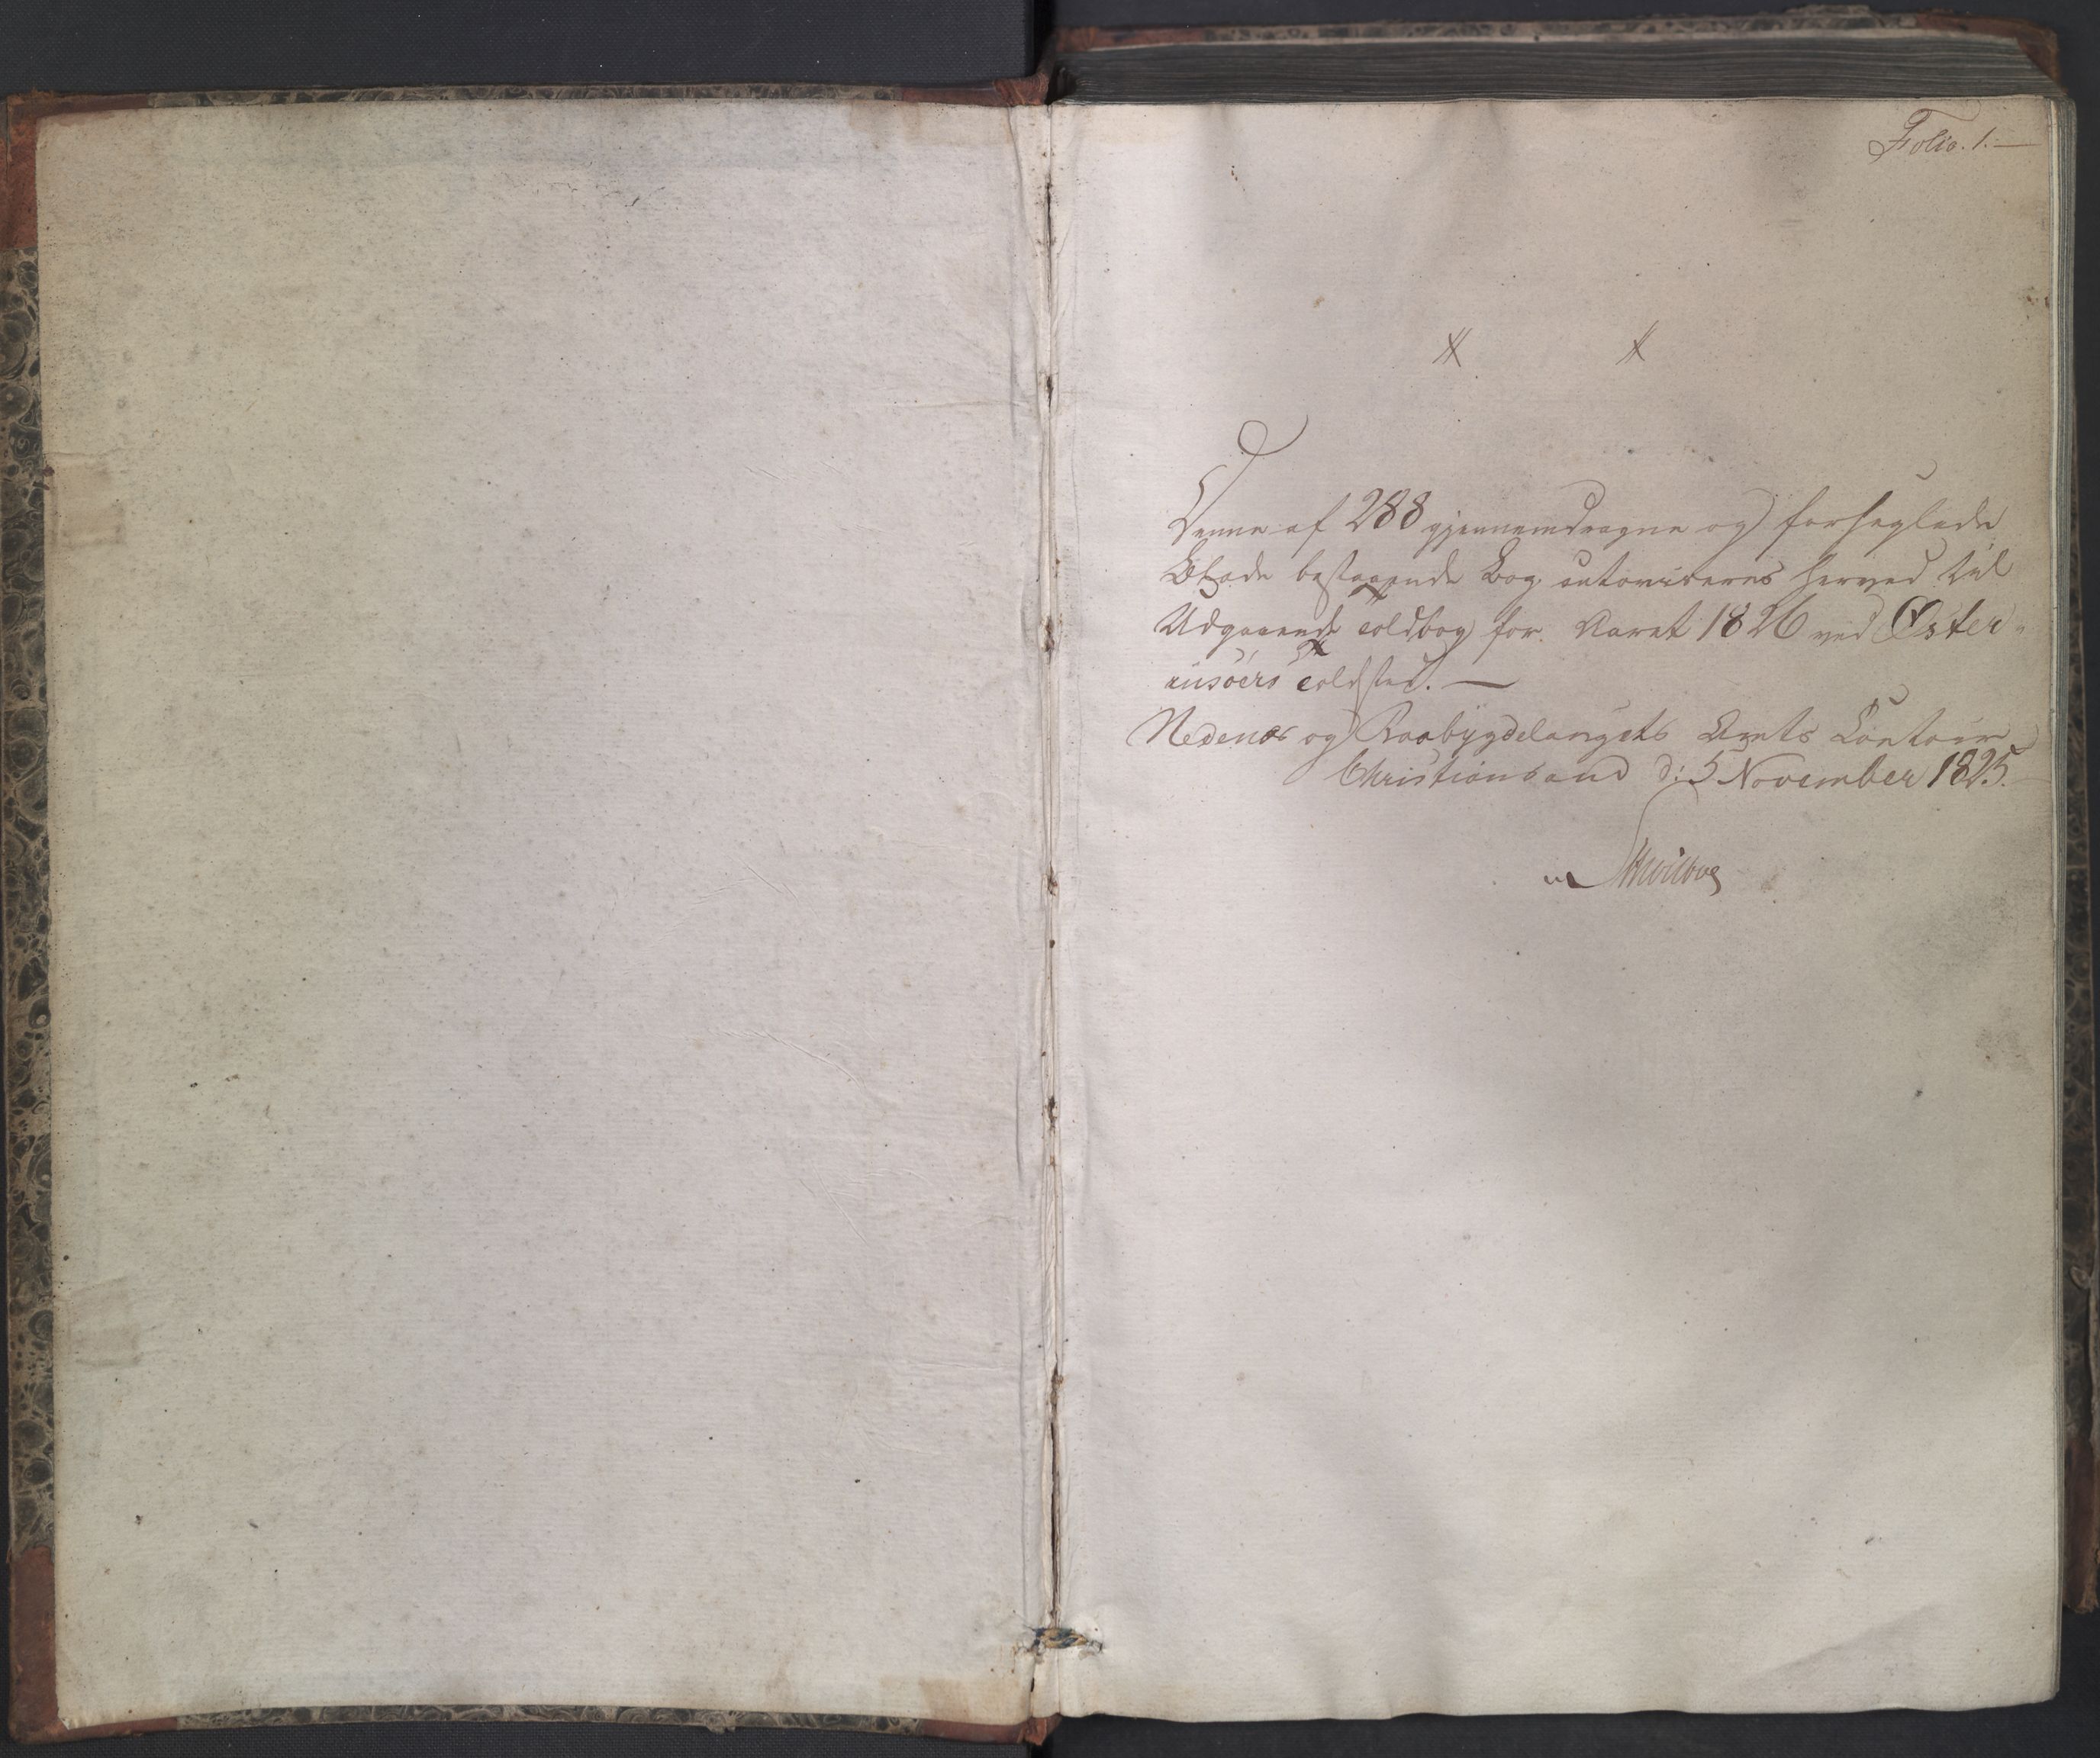 Folio. 1.
Denne af 288 gjennemdragne og forseglede
Blade bestaaende Bog autoriseres herved til
Udgaaende Toldbog for Aaret 1826 ved Øster-
riisöers Toldsted.
Nedenæs og Raabÿgdelaugets Amts Contoir
Christiansand d: 5 November 1825.